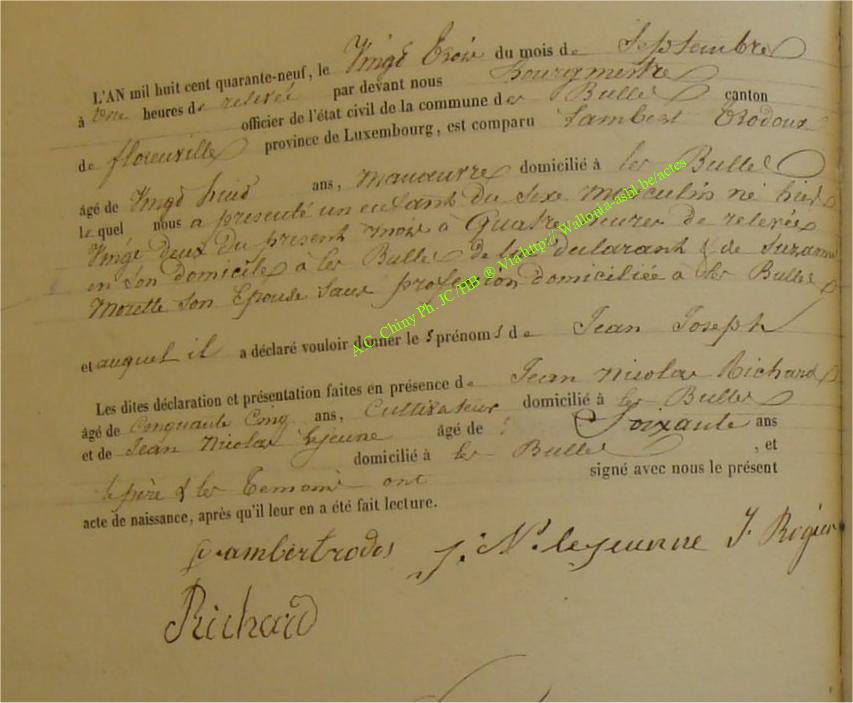 L'AN mil huit cent quarante-neuf, le Vingt Trois du mois de Septembre
à une heures de relevée par devant nous Bourgmestre
officier de l'état civil de la commune des Bulles canton
de florenville province de Luxembourg, est comparu Lambert Trodoux
âgé de Vingt huit ans, manœuvre domicilié à les Bulles
lequel nous a presenté un enfant du sexe Masculin né hier
Vingt deux du present mois à Quatre heures de relevée
en son domicile à les Bulles de lui dularant & de Suzanne
Morette son Epouse sans profession domiciliée à les Bulles
et auquel il a déclaré vouloir donner le s prénom s de Jean Joseph
Les dites déclaration et présentation faites en présence de Jean Nicolas Richard
âgé de Cinquante Cinq ans, Cultivateur domicilié à les Bulles
et de Jean Nicolas Lejeune âgé de Soixante ans
domicilié à les Bulles , et
le père & les Temoins ont signé avec nous le présent
acte de naissance, après qu'il leur en a été fait lecture.
Lambertrodos J. N. lejeunne J. Rogier
Richard
A.C. Chiny Ph. JC /HB ® Via http:// Wallonia-asbl.be/actes